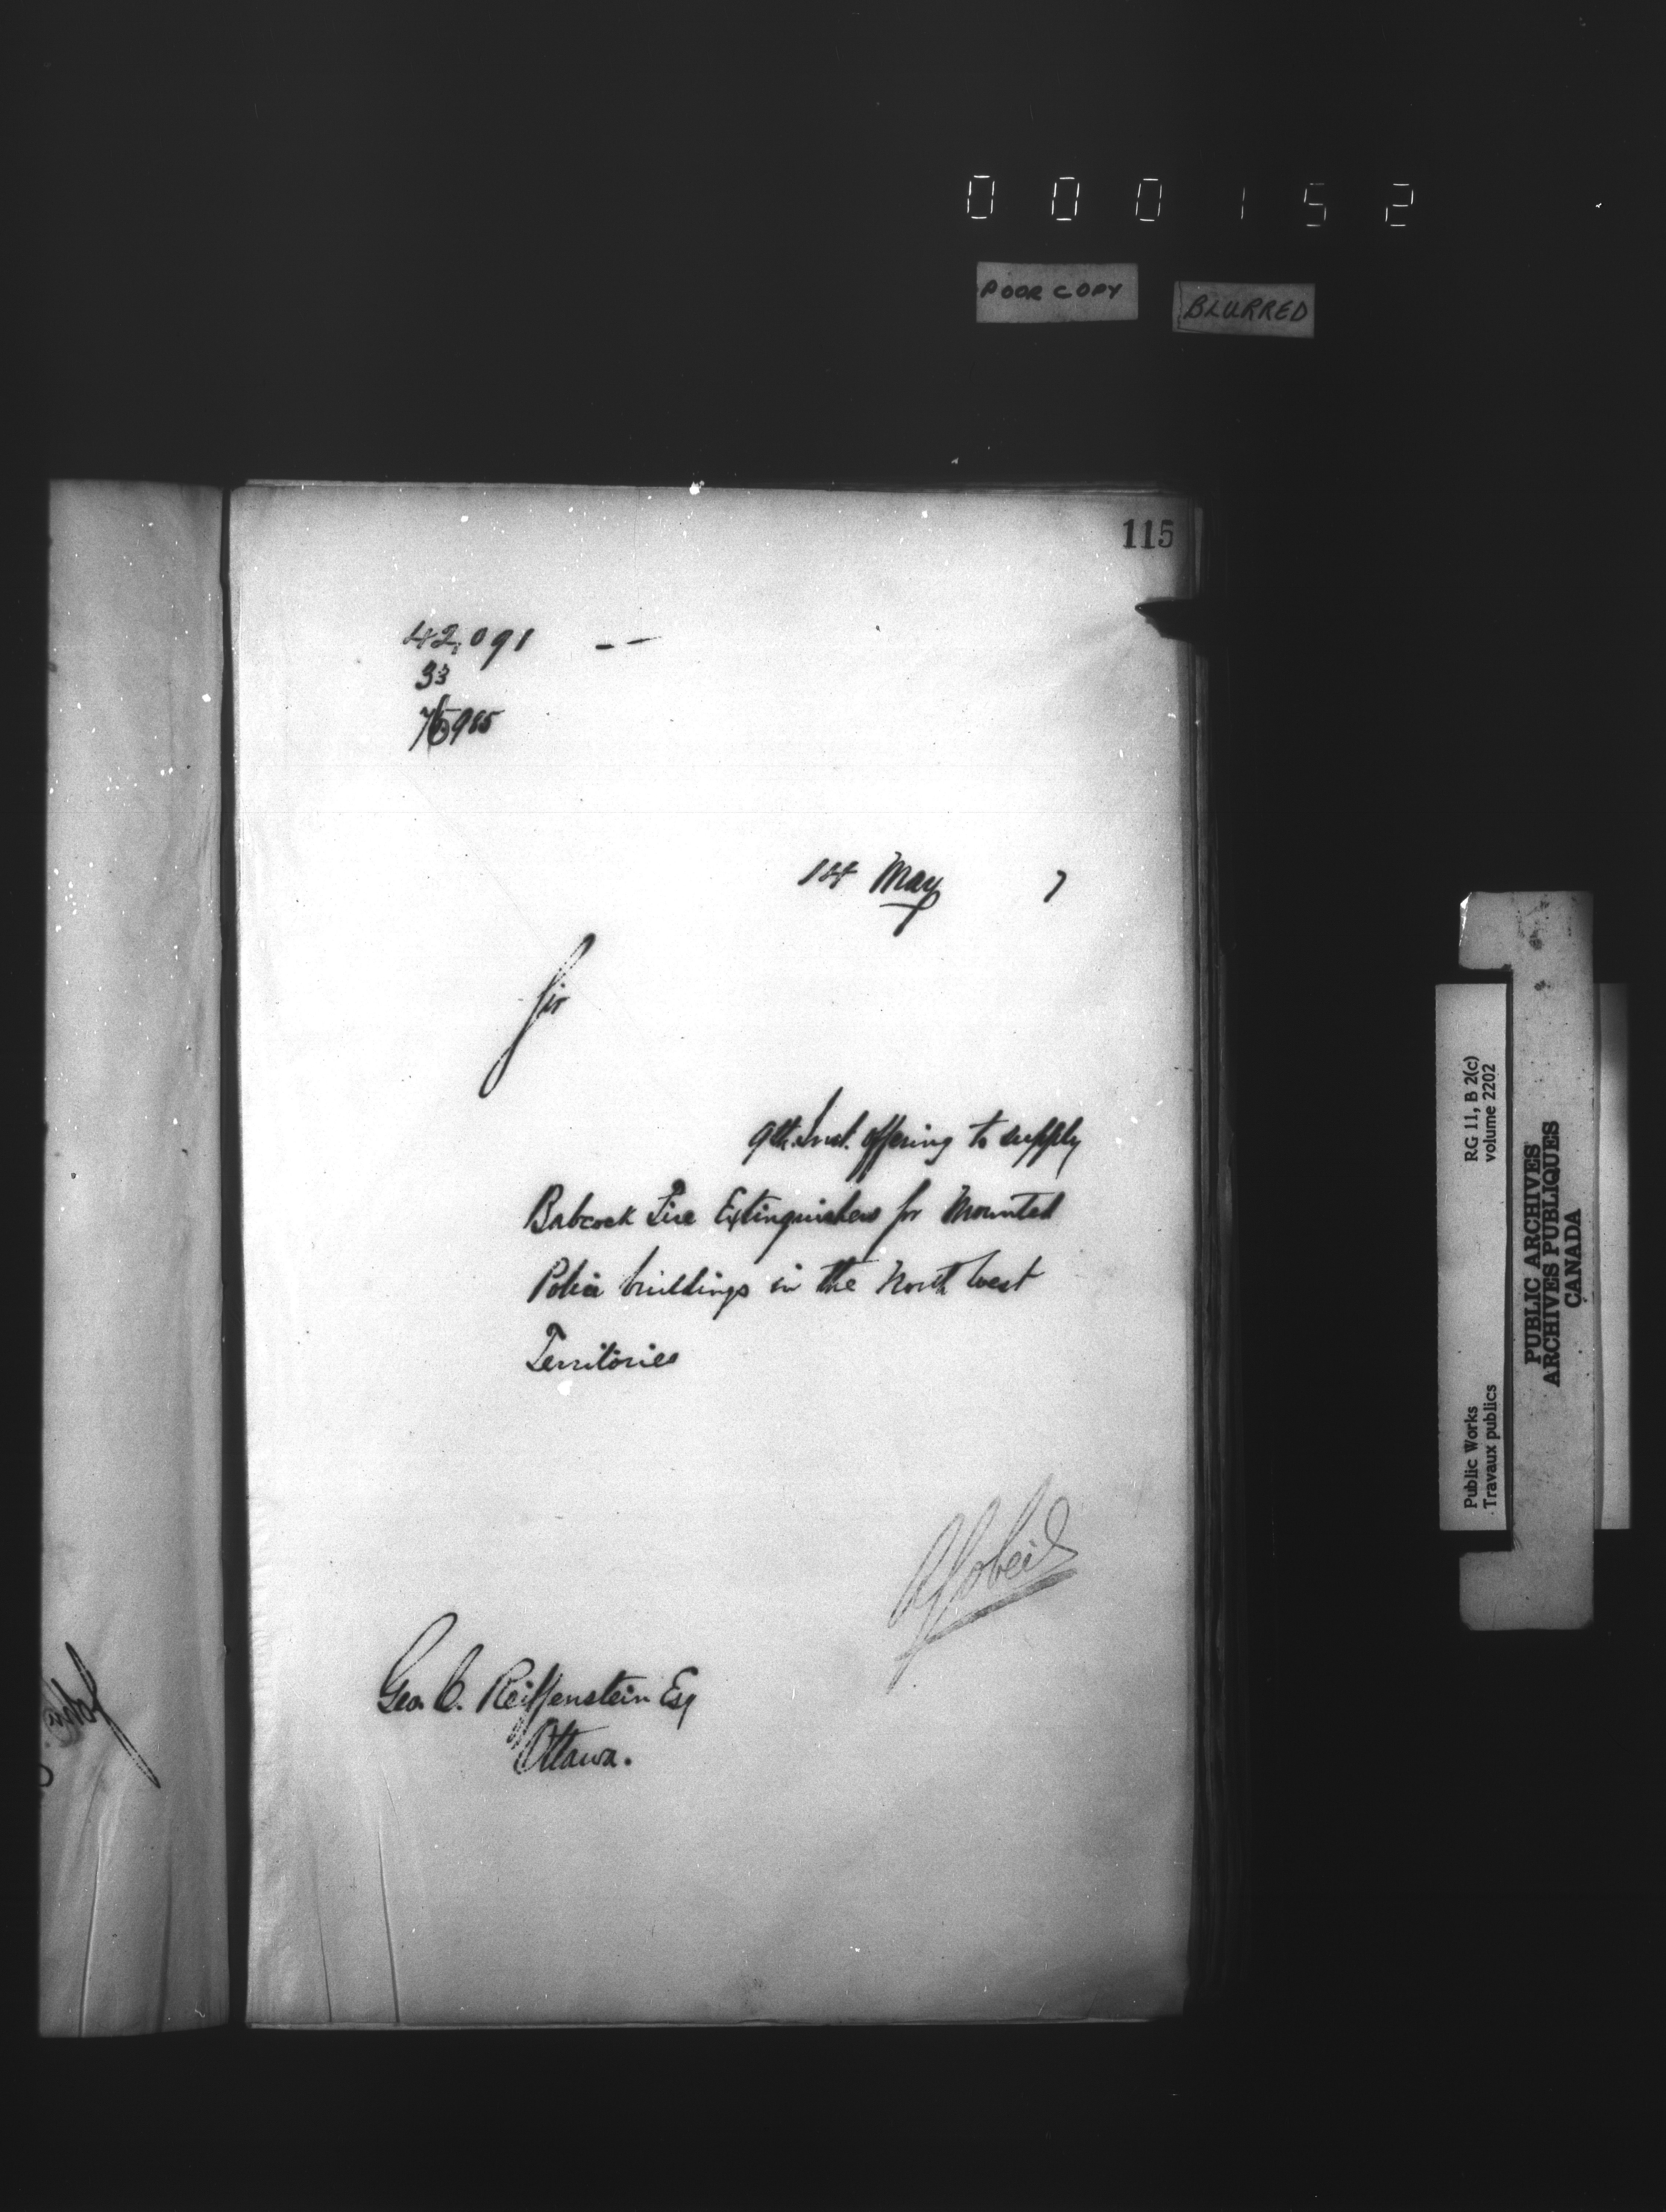 000152
POOR COPY
BLURRED
115
42,091 --
33
75985
14 May 7
Sir
9th Inst. offering to supply
Babcock Fire Extinguishers for Mounted
Police buildings in the North West
Territories
AGobeil
Geo. C. Reiffenstein Esq
Ottawa.
Public Works RG 11, B 2(c)
Travaux publics volume 2202
PUBLIC ARCHIVES
ARCHIVES PUBLIQUES
CANADA